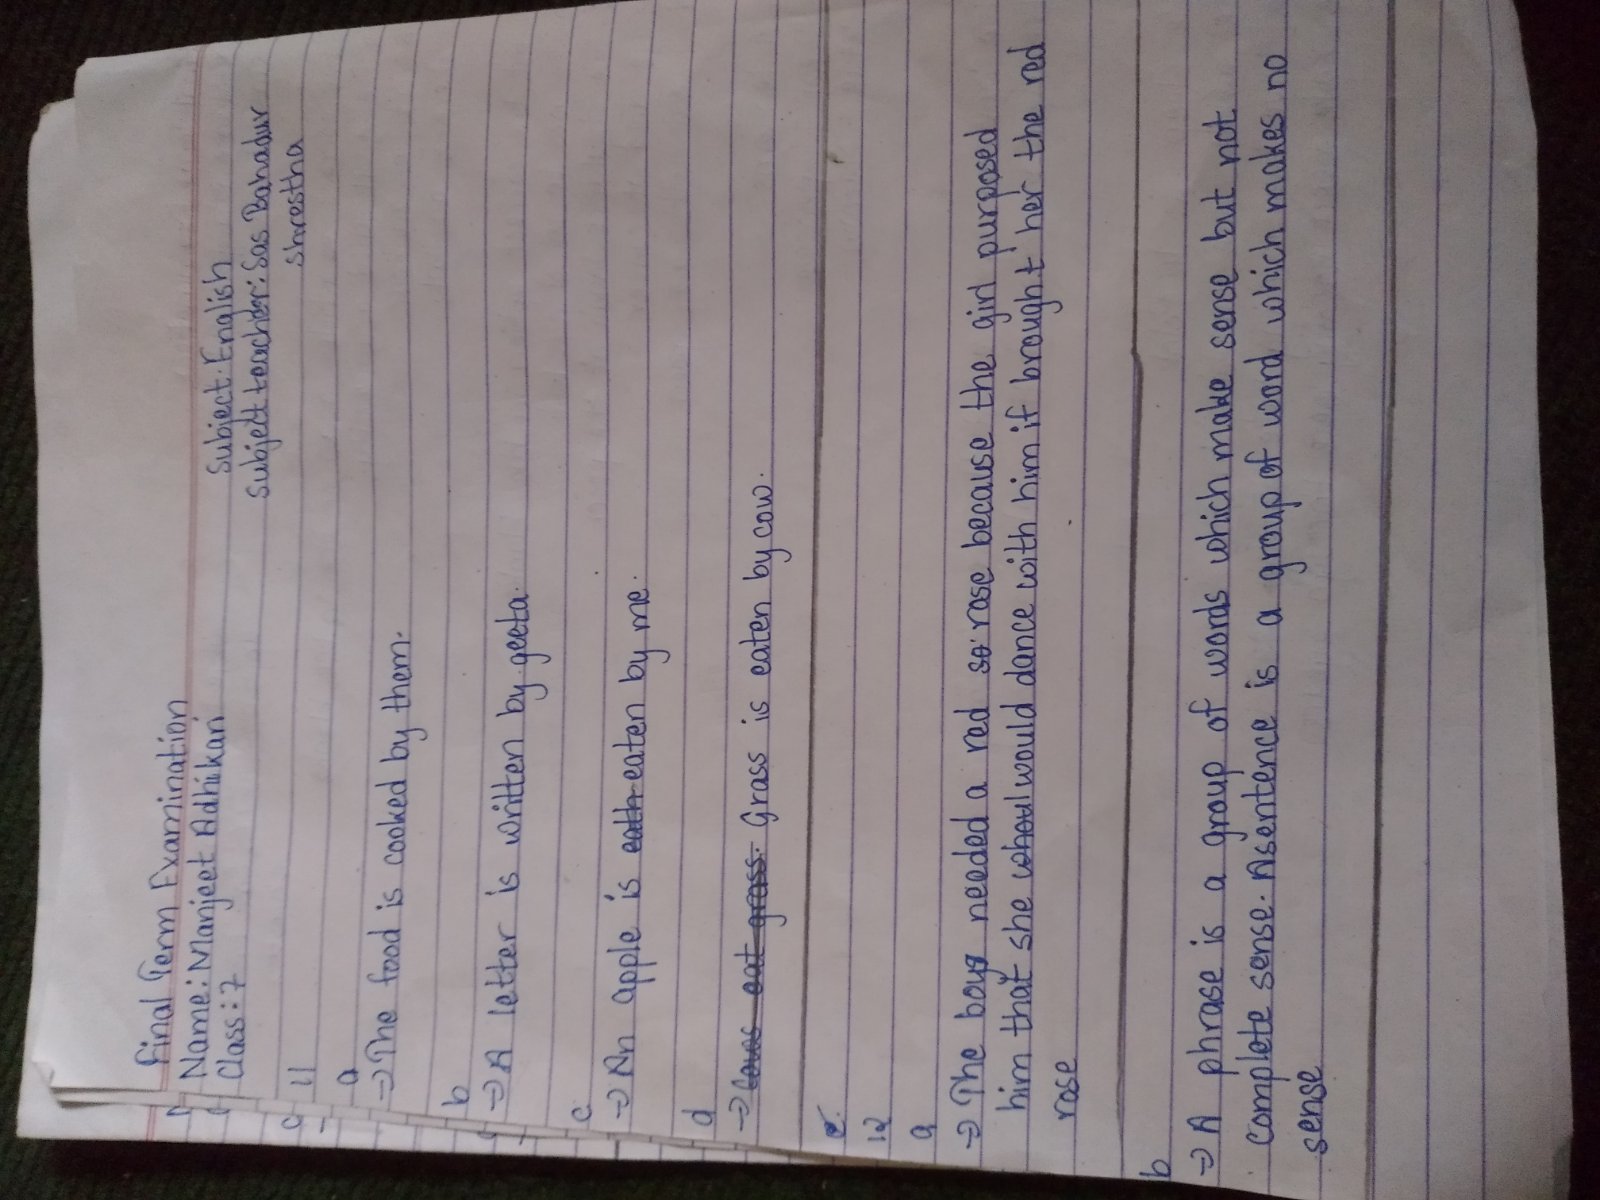 Final Term Examination
Name: Manjeet Adhikari
Subject: English
Class: 7
Subject teacher: Sas Bahadur
Shrestha
11
a
→ The food is cooked by them.
b
→ A letter is written by geeta.
c
→ An apple is eath eaten by me.
d
→ Cows eat grass. Grass is eaten by cow.
12
a
→ The boy needed a red so rose because the girl purposed
him that she whoul would dance with him if brought her the red
rose
b
→ A phrase is a group of words which make sense but not
complete sense. A sentence is a group of word which makes no
sense